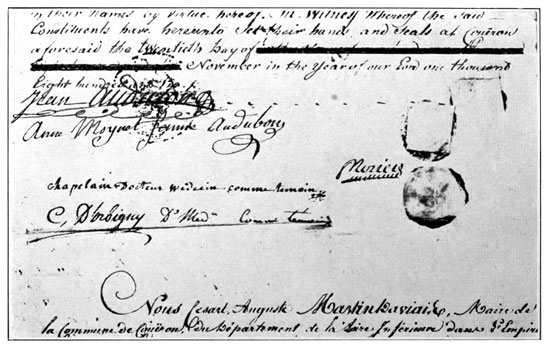 in their names by virtue hereof. In Witness Whereof the said
Constituents have hereunto Set their hand and Seals at Couëron
aforesaid the twentieth Day of
November in the Year of our Lord one thousand
Eight hundred and
Jean Audubon
Anne Moynet femme Audubon
Meriei
Chapelain Docteur Médecin comme temoin
C, D'orbigny Dr Med comme temoin
Nous Cesar Auguste Martin Daviais, Maire de
la Commune de Couëron, du Département de la Loire Inférieure dans l'Empire